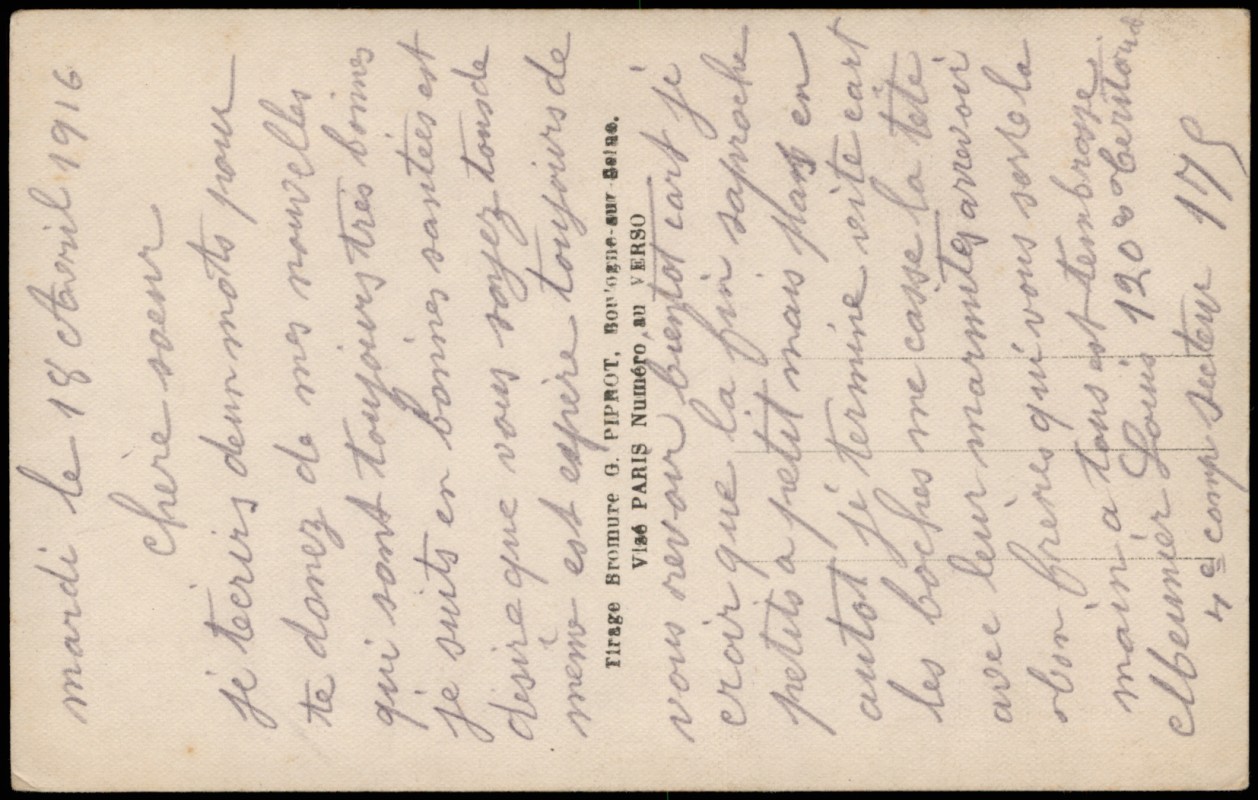 mardi le 18 Avril 1916
chère soeur
je técris deux mots pour
te donez de mes nouvelles
qui sont toujours très bonnes
je suits en bonnes santées est
désire que vous soyez tous de
meme est espire toujours de
Tirage Bromure G. PIPROT, Boulogne-sur-Seine.
Visé PARIS Numéro, au VERSO
vous revoir bientot cart je
croir que la fin saproche
petits a petit mais pas en
autot je termine vite cart
les boches me casse la tête
avec leur marmites arrevoir
ton frères qui vous sere la
main a tous est tembrasse
Meunier Louis 120e territorial
4e comp secteur 175